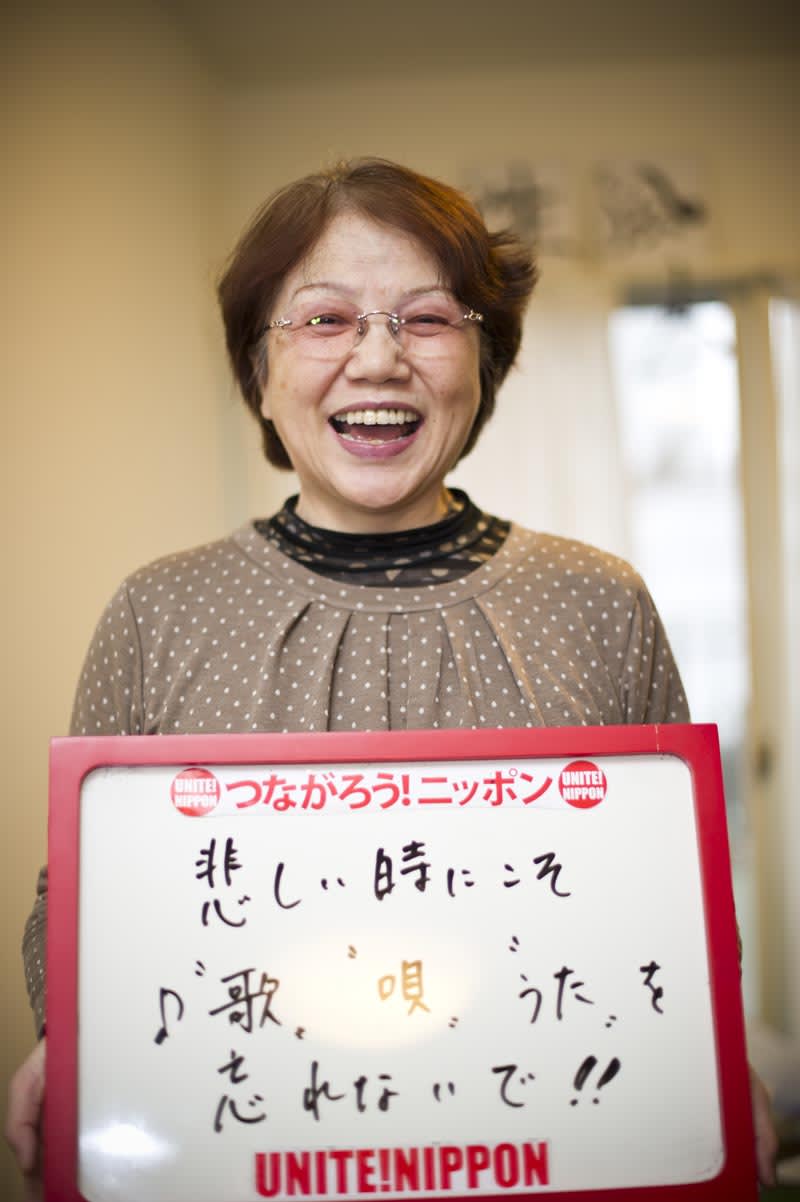 UNITE! NIPPON つながろう!ニッポン UNITE! NIPPON
悲しい時にこそ
♪"歌" "唄" "うた"を
忘れないで!!
UNITE!NIPPON